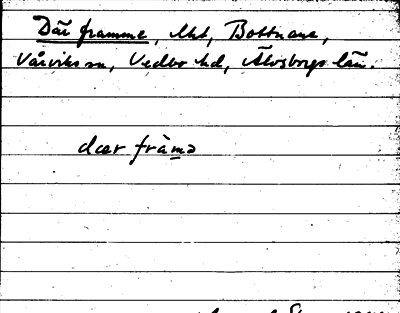 Där framme, Mst, Bottnane,
Vårviks sn, Vedbo hd, Älvsborgs län.
dær fràmə